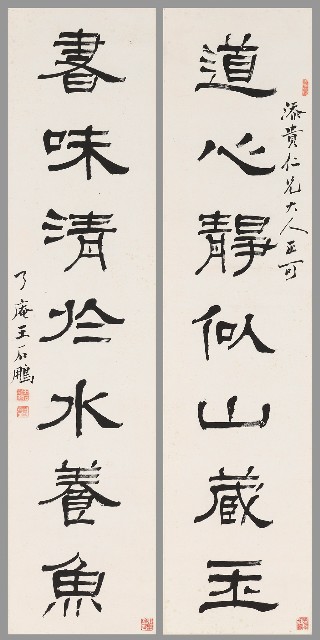 道心靜似山藏玉
添貴仁兄大人正可
書味清於水養魚
了庵王石鵬